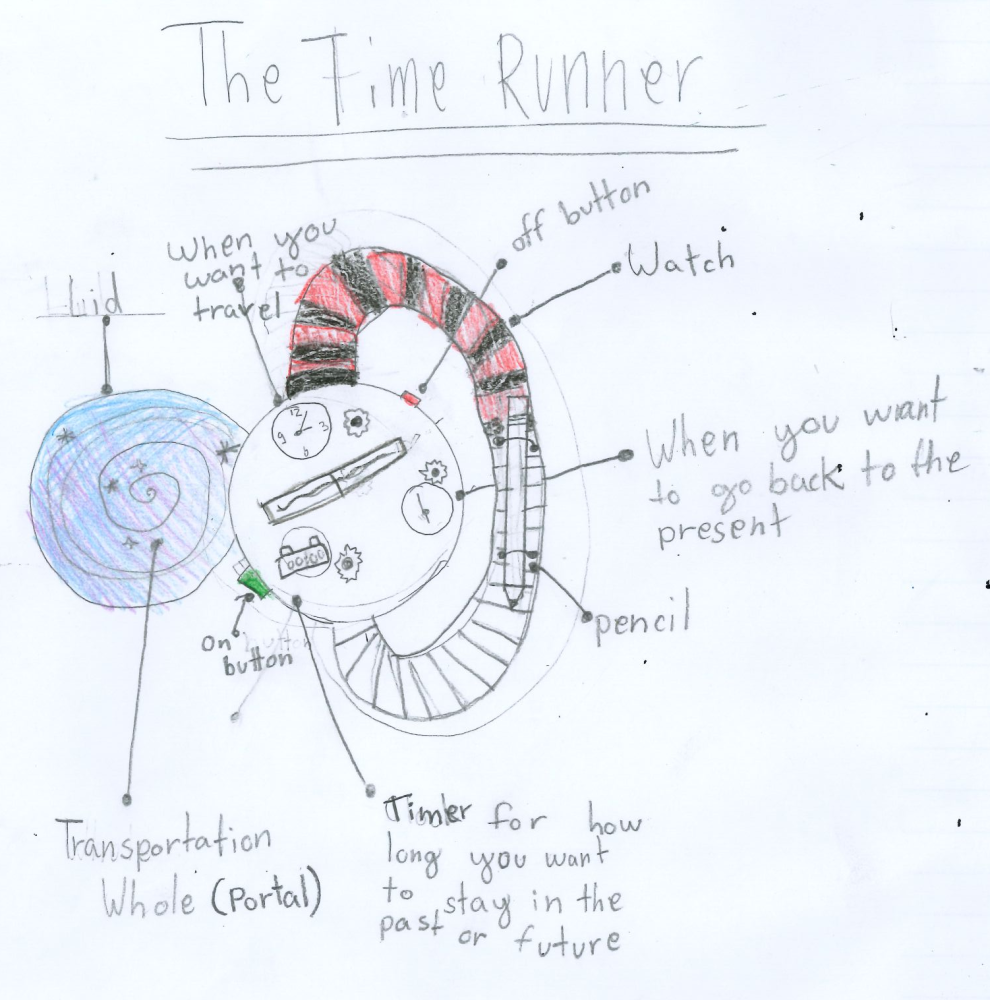 The Time Runner
When you
want to
travel
off button
Watch
Fluid
12
3
6
9
When you want
to go back to the
present
00:00
pencil
on button
button
Transportation
Whole (Portal)
Timer for how
long you want
to stay in the
past or future